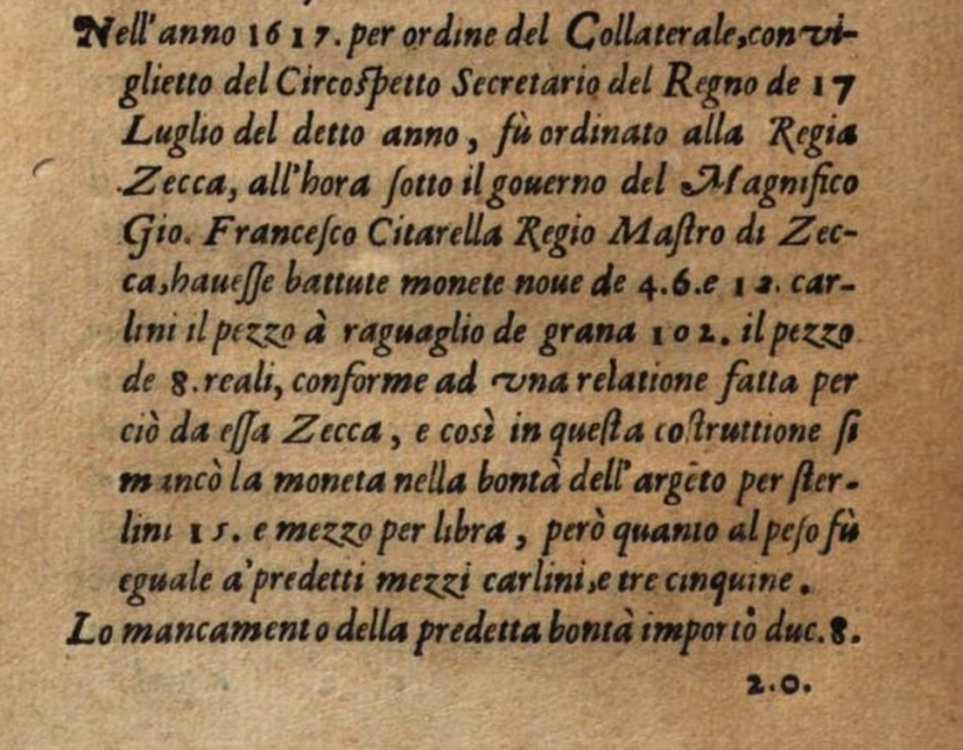 Nell'anno 1617. per ordine del Collaterale, con vi-
glietto del Circoſpetto Secretario del Regno de 17
Luglio del detto anno, fù ordinato alla Regia
Zecca, all'hora ſotto il gouerno del Magnifico
Gio. Franceſco Citarella Regio Maſtro di Zec-
ca, haueſſe battute monete noue de 4.6.e 12. car-
lini il pezzo à raguaglio de grana 102. il pezzo
de 8. reali, conforme ad vna relatione fatta per
ciò da eſſa Zecca, e così in queſta coſtruttione ſi
mancò la moneta nella bontà dell'argẽto per ſter-
lini 15. e mezzo per libra, però quanto al peſo fù
eguale a'predetti mezzi carlini, e tre cinquine.
Lo mancamento della predetta bontà importò duc. 8.
2.0.